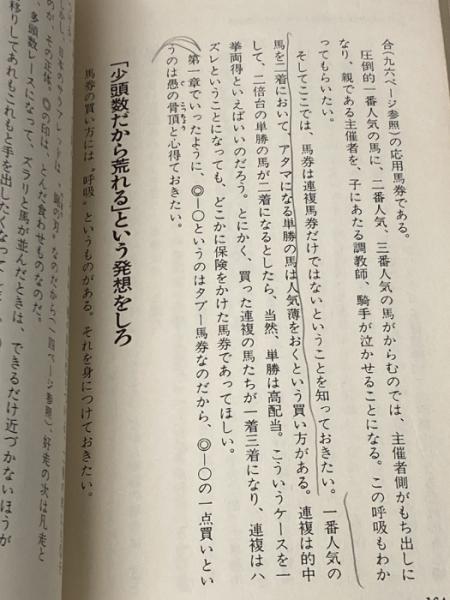 合(九六ページ参照)の応用馬券である。
圧倒的一番人気の馬に、二番人気、三番人気の馬がからむのでは、主催者側がもち出しに
なり、親である主催者を、子にあたる調教師、騎手が泣かせることになる。この呼吸もわか
ってもらいたい。
そしてここでは、馬券は連複馬券だけではないということを知っておきたい。一番人気の
馬を二着において、アタマになる単勝の馬は人気薄をおくという買い方がある。連複は的中
して、二倍台の単勝の馬が二着になるとしたら、当然、単勝は高配当。こういうケースを一
挙両得といえばいいのだろう。とにかく、買った連複の馬たちが一着三着になり、連複はハ
ズレということになっても、どこかに保険をかけた馬券であってほしい。
第一章でいったように、◎―○というのはタブー馬券なのだから、◎―○の一点買いとい
うのは愚の骨頂と心得ておきたい。
「少頭数だから荒れる」という発想をしろ
馬券の買い方には〝呼吸〟というものがある。それを身につけておきたい。
多頭数レースになって、ズラリと馬が並んだときは、できるだけ近づかないほうが
移りしてあれもこれもと手を出したくなって